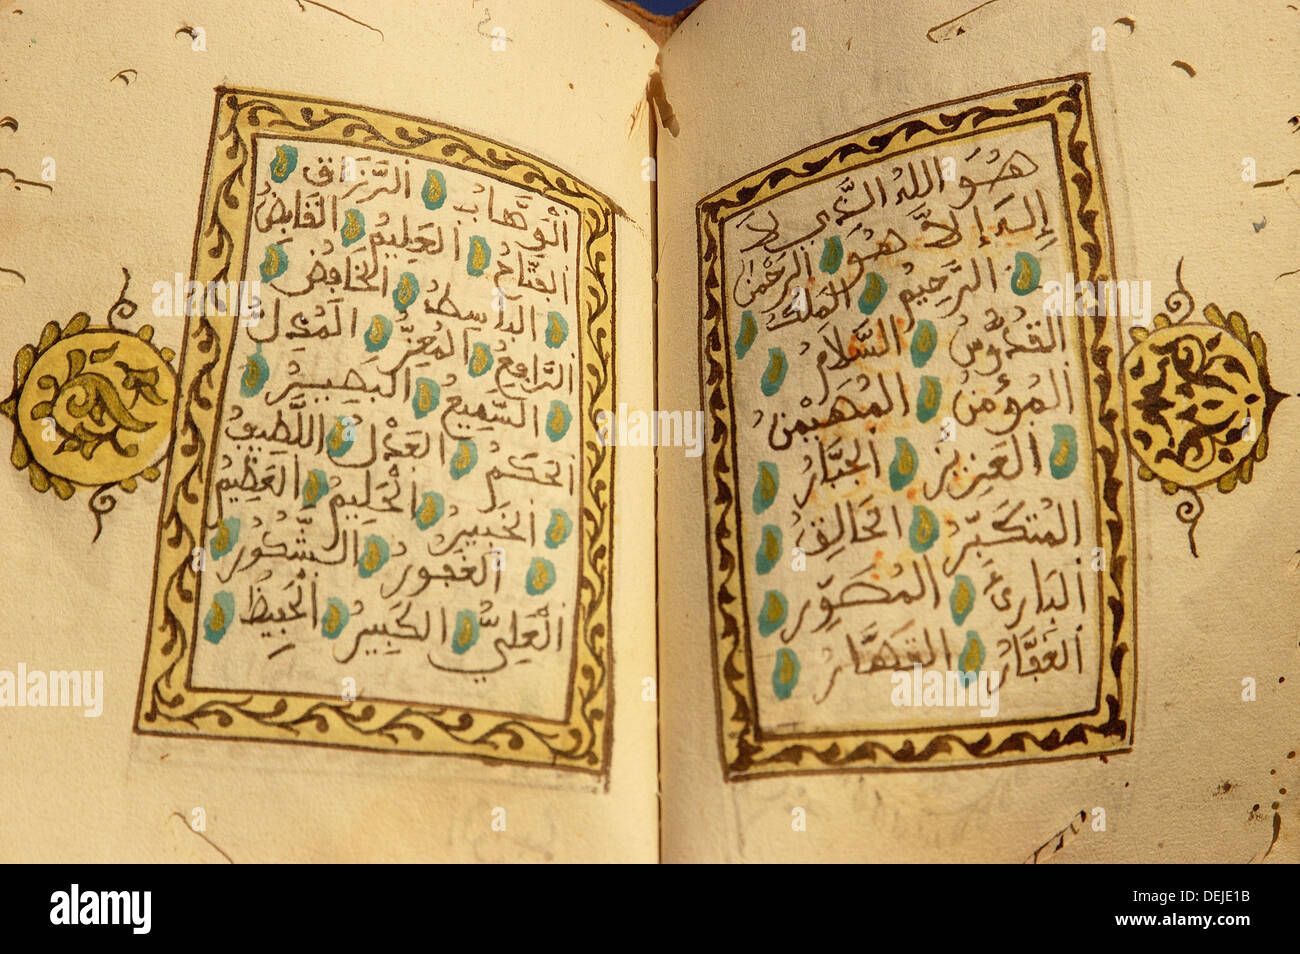 هُوَ اللهُ الَّذِي لَا
إِلَهَ إِلَّا هُوَ الرَّحْمٰنُ
الرَّحِيمُ الْمَلِكُ
الْقُدُّوسُ السَّلَامُ
الْمُؤْمِنُ الْمُهَيْمِنُ
الْعَزِيزُ الْجَبَّارُ
الْمُتَكَبِّرُ الْخَالِقُ
الْبَارِئُ الْمُصَوِّرُ
الْغَفَّارُ الْقَهَّارُ
الْوَهَّابُ الرَّزَّاقُ
الْفَتَّاحُ الْعَلِيمُ الْقَابِضُ
الْبَاسِطُ الْخَافِضُ
الرَّافِعُ الْمُعِزُّ الْمُذِلُّ
السَّمِيعُ الْبَصِيرُ
الْحَكَمُ الْعَدْلُ اللَّطِيفُ
الْخَبِيرُ الْحَلِيمُ الْعَظِيمُ
الْغَفُورُ الشَّكُورُ
الْعَلِيُّ الْكَبِيرُ الْحَفِيظُ
alamy
Image ID: DEJE1B
www.alamy.com